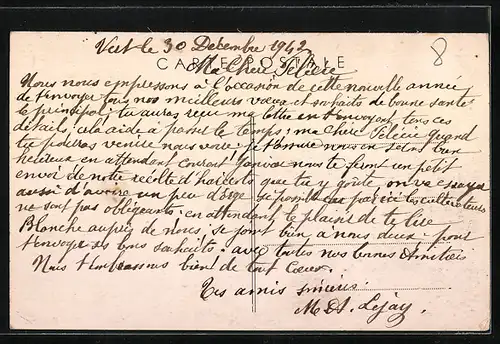 Vert le 30 Décembre 1942
CARTE POSTALE
Ma Chere Félicie
Nous nous empressons à l'occasion de cette nouvelle année
de t'envoyer tous nos meilleurs vœux et souhaits de bonne santé
le principal; tu auras reçu ma lettre en t'envoyant tous ces
détails; cela aide à passer le temps; ma chere Félicie quand
tu pourras venire nous voire; Henri et nous en seront bien
heureux en attendant Courent Janvier nous te feront un petit
envoi de notre récolte d'haricots que tu y goute, on va essayer
aussi d'avoire un peu d'orge si possible car par ici les cultivateurs
ne sont pas obligeants; en attendant le plaisir de te lire
Blanche auprès de nous; se joint bien à nous deux; pour
t'envoyer ses bons souhaits; avec toutes nos bonnes Amitiés
Nous t'embrassons bien de tout Cœur.
Tes amis sincères
M Lejay.
8